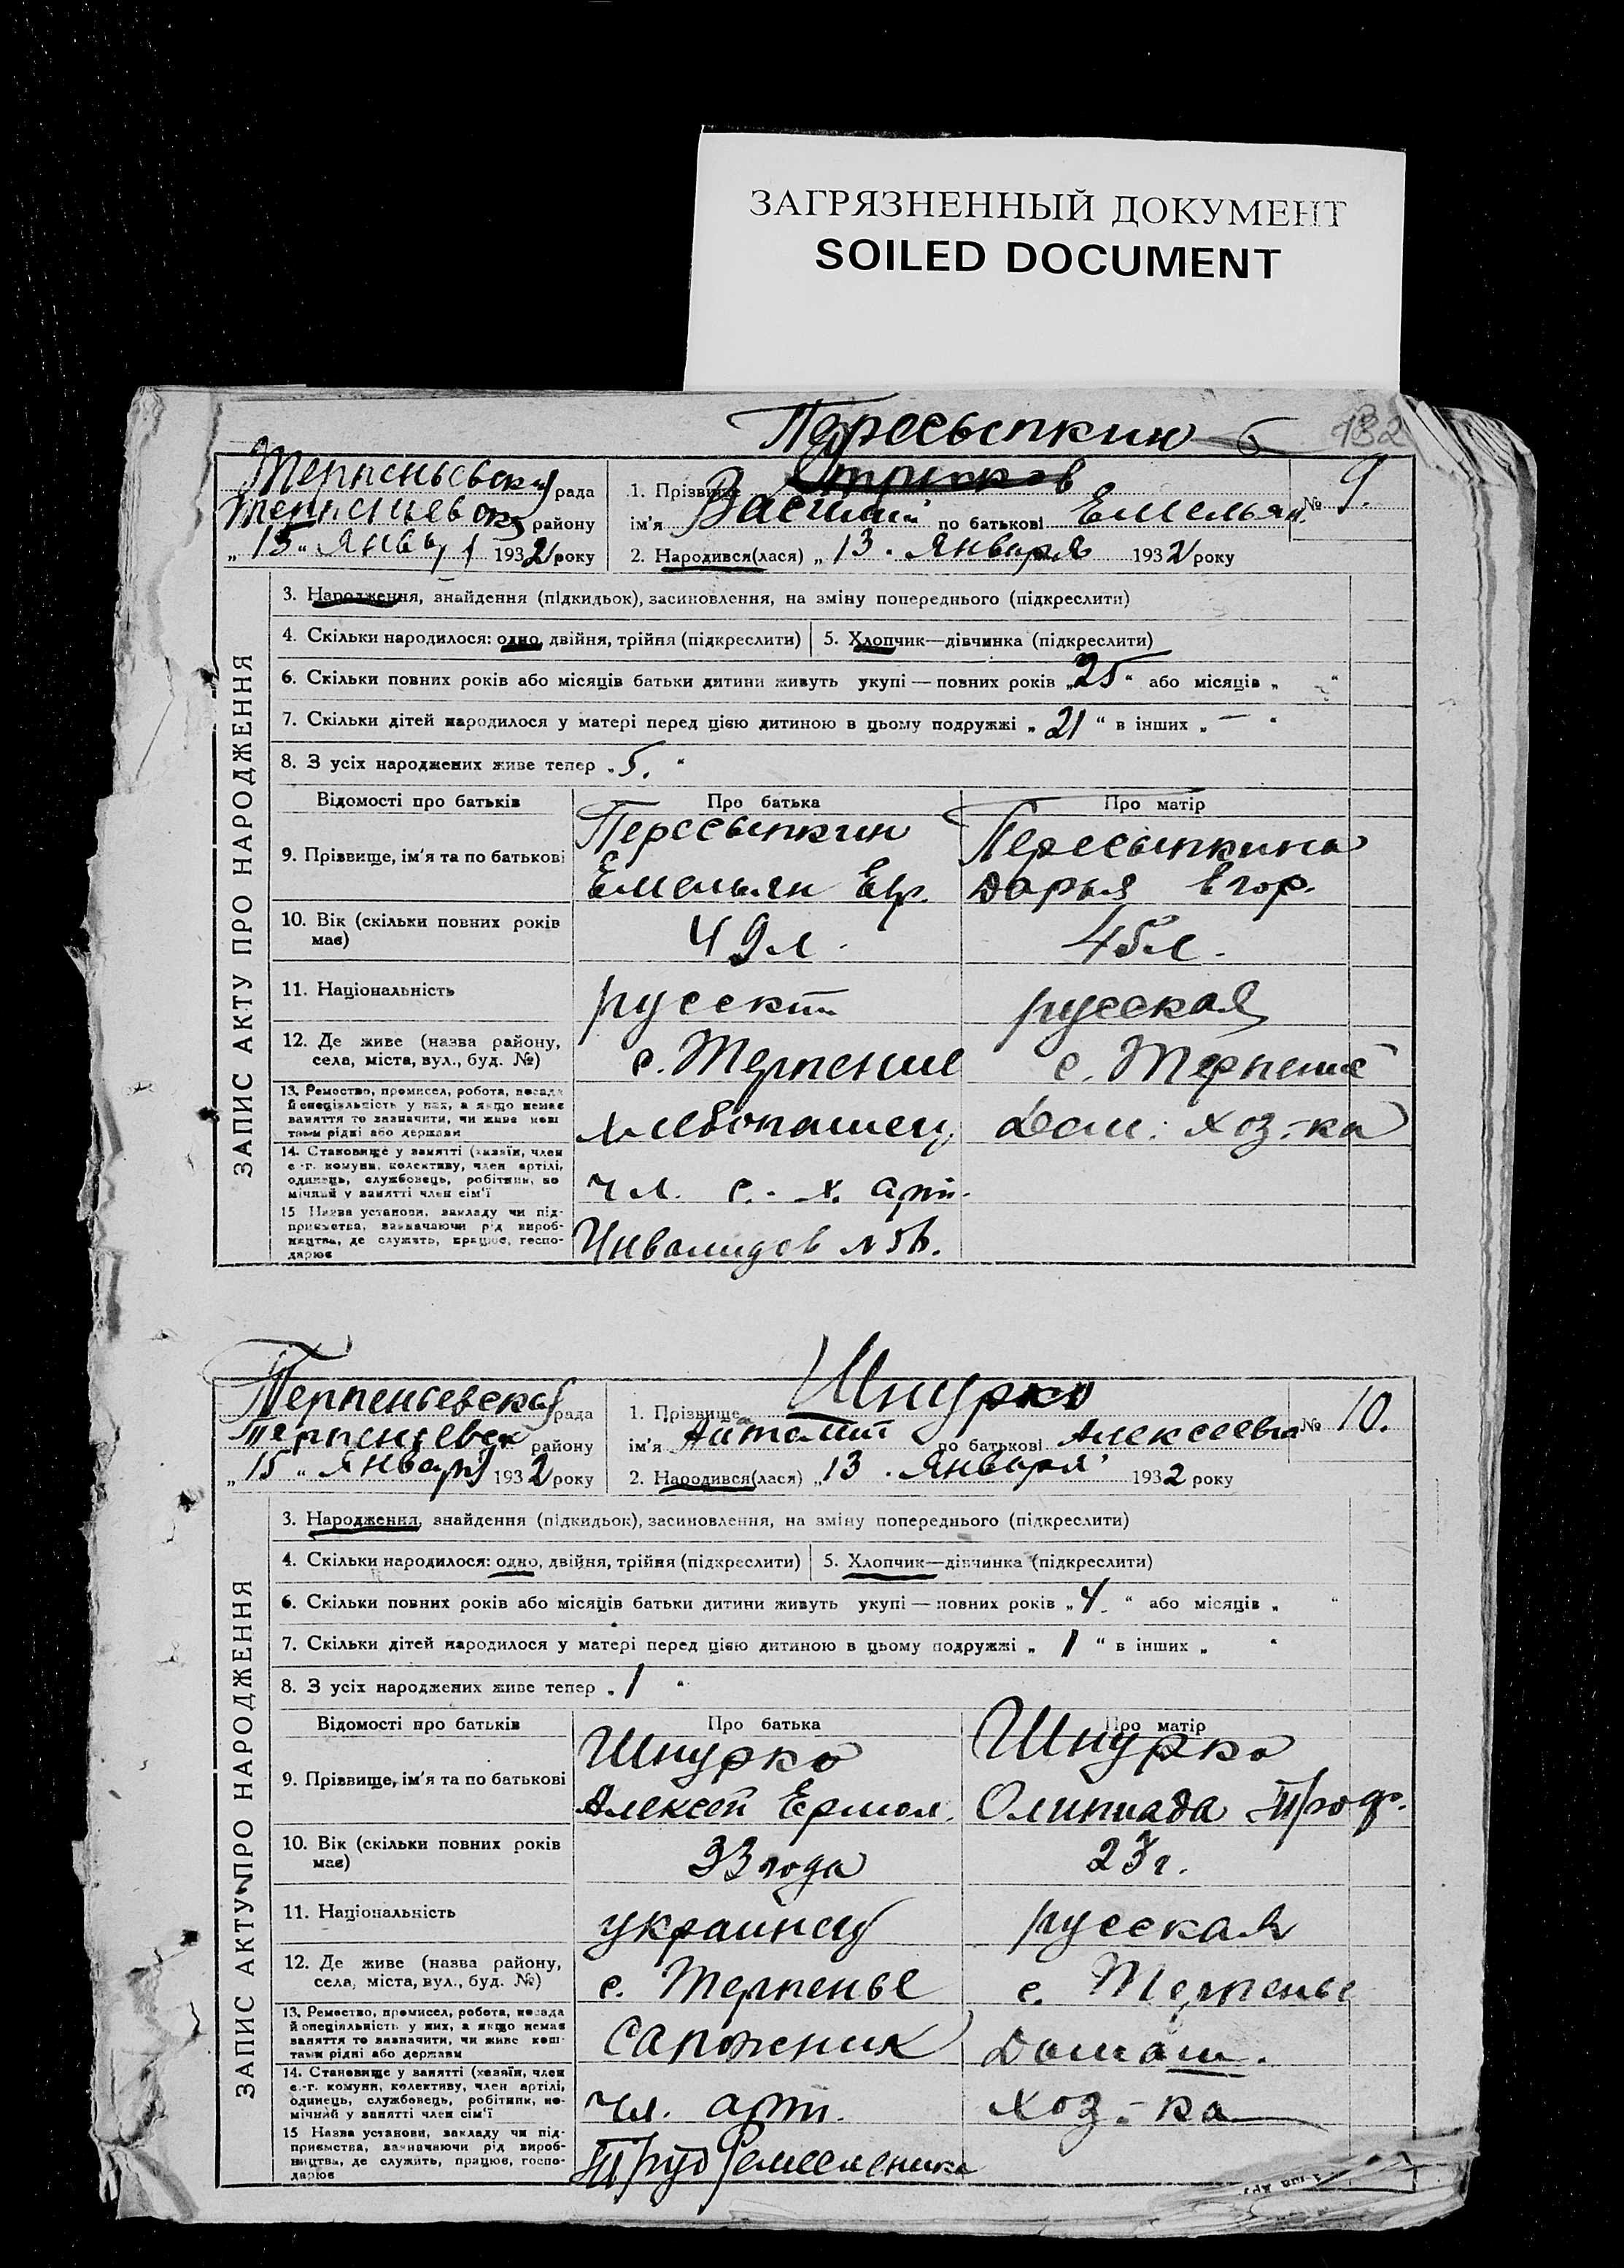 ЗАГРЯЗНЕННЫЙ ДОКУМЕНТ
SOILED DOCUMENT
132
Пересыпкин
Терпеньевская рада
Терпеньевск району
„15“ Январ 1932 року
1. Прізвище
ім'я Василий по батькові Емельян.
№ 9.
2. Народився(лася) „13. Января 1932 року
ЗАПИС АКТУ ПРО НАРОДЖЕННЯ
3. Народження, знайдення (підкидьок), засиновлення, на зміну попереднього (підкреслити)
4. Скільки народилося: одно, двійня, трійня (підкреслити)
5. Хлопчик—дівчинка (підкреслити)
6. Скільки повних років або місяців батьки дитини живуть укупі — повних років „25“ або місяців „ “
7. Скільки дітей народилося у матері перед цією дитиною в цьому подружжі „21“ в інших „—“
8. З усіх народжених живе тепер „5.“
Відомості про батьків
Про батька
Про матір
9. Прізвище, ім'я та по батькові
Пересыпкин
Емельян Егр.
Пересыпкина
Дарья Егор.
10. Вік (скільки повних років має)
49 л.
45 л.
11. Національність
русский
русская
12. Де живе (назва району,
села, міста, вул., буд. №)
с. Терпение
с. Терпение
13. Ремество, промисел, робота, посада
й спеціяльність у них, а якщо немає
заняття то зазначити, чи живе кош-
тами рідні або держави
хлебопашец
Дом. хоз-ка
14. Становище у занятті (хазяїн, член
с.-г. комуни, колективу, член артілі,
одинець, службовець, робітник, по-
мічний у занятті член сім'ї
чл. с.-х. арт.
15 Назва установи, закладу чи під-
приємства, зазначаючи рід вироб-
ництва, де служить, працює, госпо-
дарює
Инвалидов
Терпеньевская рада
Терпеньевск району
„15“ Январ 1932 року
1. Прізвище Шнурко
ім'я Анатолий по батькові Алексеевич
№ 10.
2. Народився(лася) „13. Января 1932 року
ЗАПИС АКТУ ПРО НАРОДЖЕННЯ
3. Народження, знайдення (підкидьок), засиновлення, на зміну попереднього (підкреслити)
4. Скільки народилося: одно, двійня, трійня (підкреслити)
5. Хлопчик—дівчинка (підкреслити)
6. Скільки повних років або місяців батьки дитини живуть укупі — повних років „4.“ або місяців „ “
7. Скільки дітей народилося у матері перед цією дитиною в цьому подружжі „1“ в інших „ “
8. З усіх народжених живе тепер „1“
Відомості про батьків
Про батька
Про матір
9. Прізвище, ім'я та по батькові
Шнурко
Алексей Ермол.
Шнурко
Олипиада Проф.
10. Вік (скільки повних років має)
33 года
23 г.
11. Національність
украинец
русская
12. Де живе (назва району,
села, міста, вул., буд. №)
с. Терпенье
с. Терпенье
13. Ремество, промисел, робота, посада
й спеціяльність у них, а якщо немає
заняття то зазначити, чи живе кош-
тами рідні або держави
Сапожник
Домаш.
14. Становище у занятті (хазяїн, член
с.-г. комуни, колективу, член артілі,
одинець, службовець, робітник, по-
мічний у занятті член сім'ї
чл. арт.
хоз-ка
15 Назва установи, закладу чи під-
приємства, зазначаючи рід вироб-
ництва, де служить, працює, госпо-
дарює
Труд Ремесленика